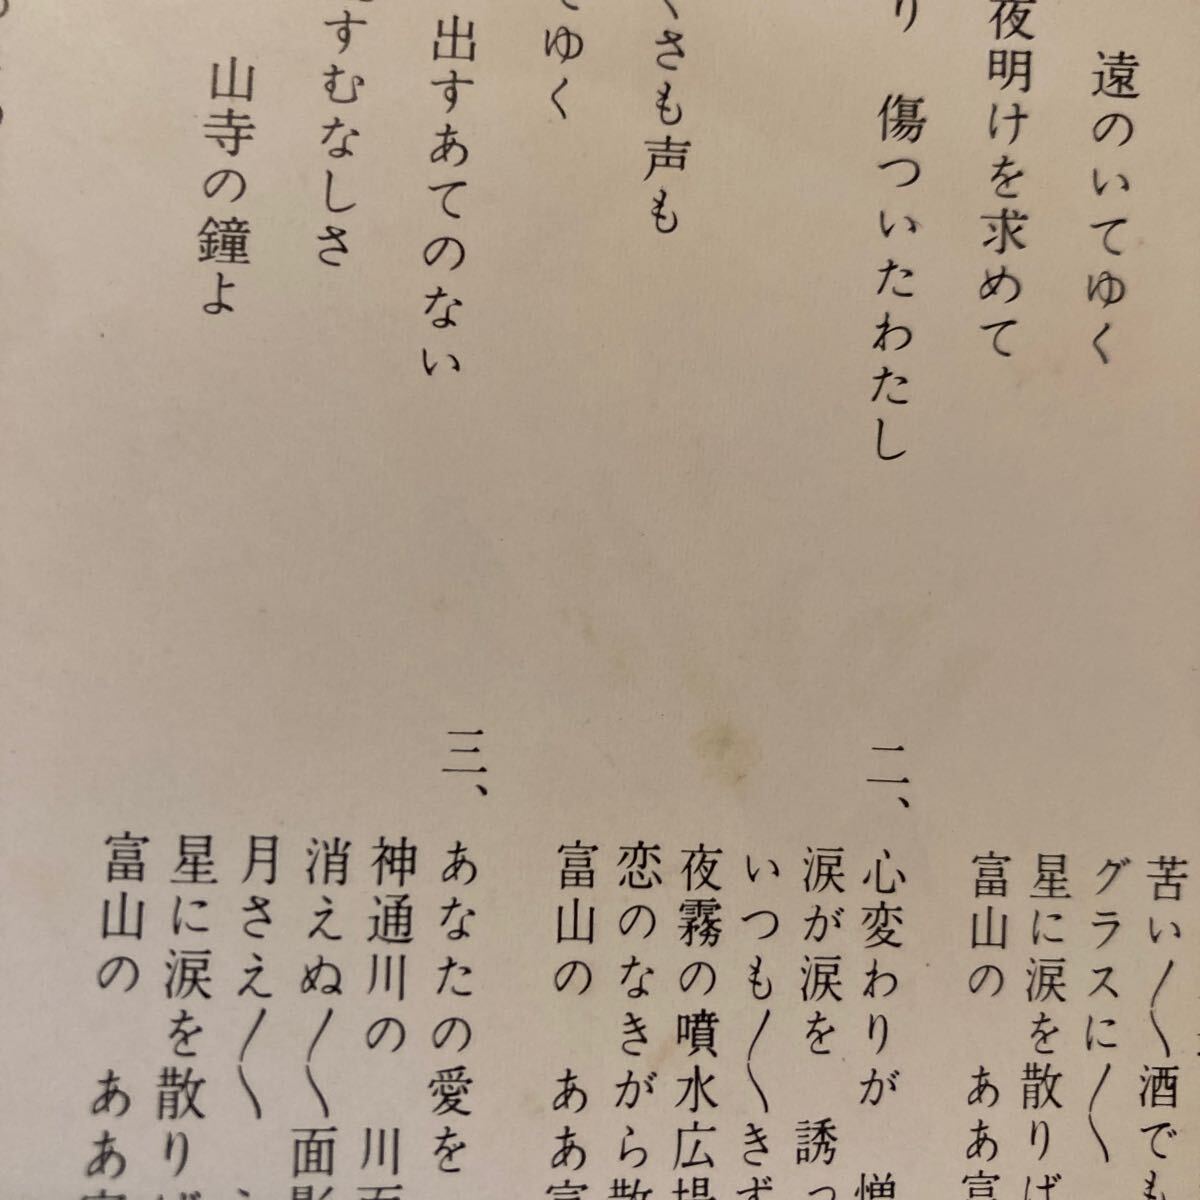 遠のいてゆく
夜明けを求めて
り　傷ついたわたし
くさも声も
てゆく
出すあてのない
すむなしさ
山寺の鐘よ
苦い〳〵酒でも
グラスに〳〵
星に涙を散りば
富山の　ああ富
二、
心変わりが　憎
涙が涙を　誘っ
いつも〳〵きず
夜霧の噴水広場
恋のなきがら散
富山の　ああ富
三、
あなたの愛を
神通川の　川面
消えぬ〳〵面影
月さえ〳〵
星に涙を散りば
富山の　ああ富